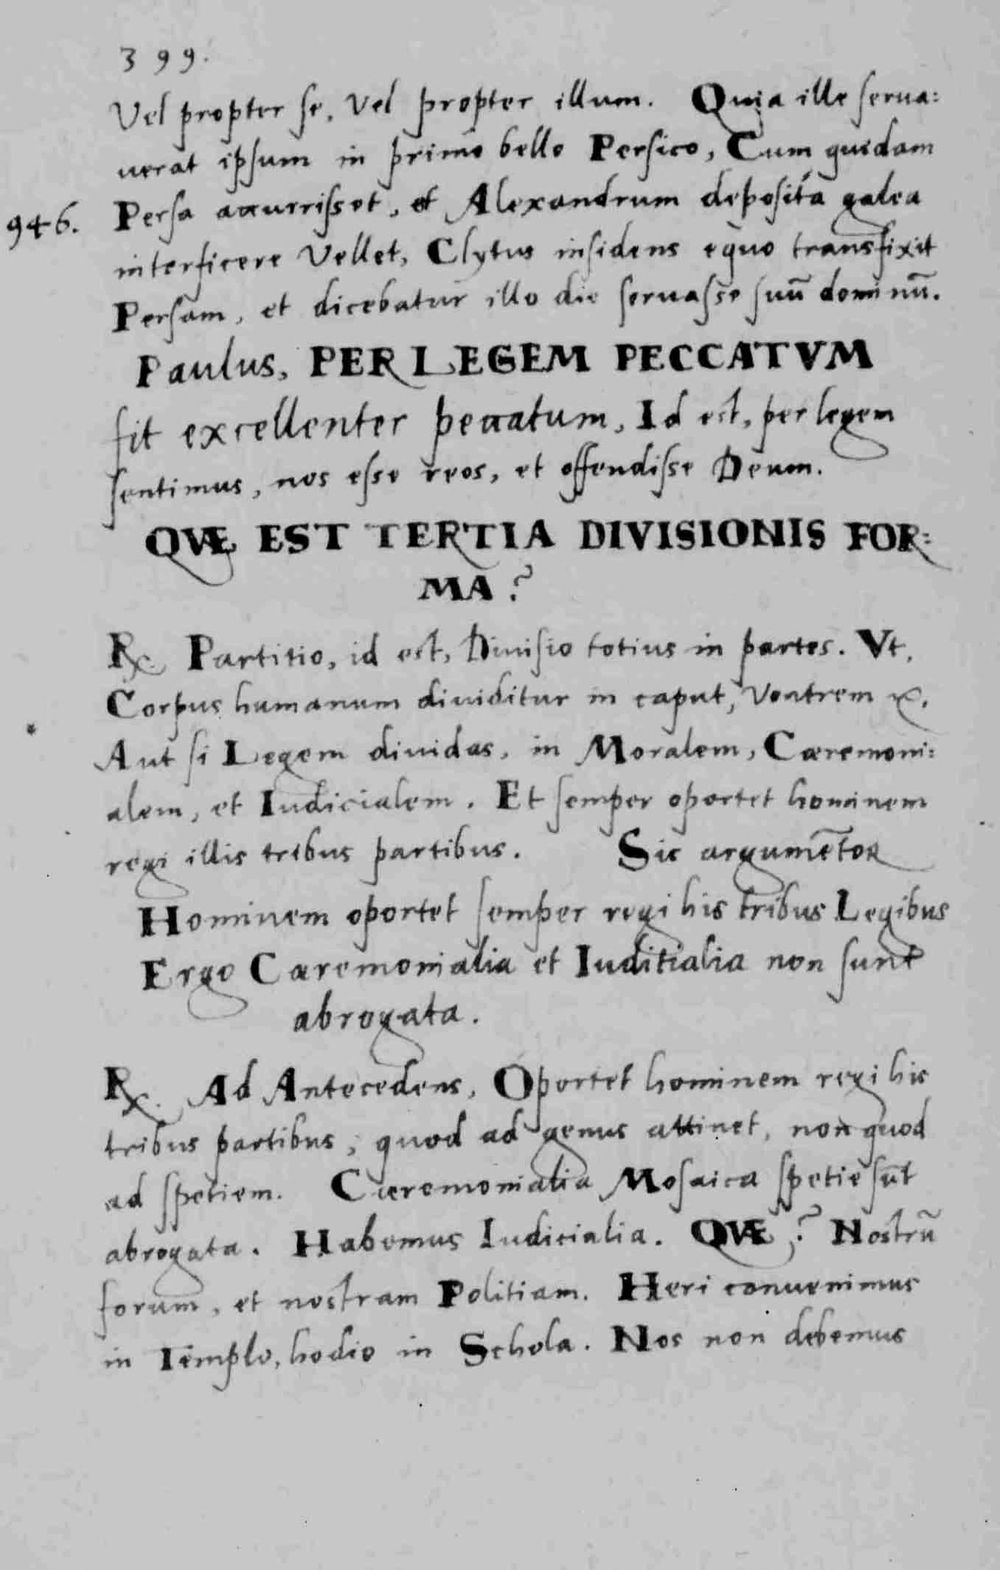 399.
Vel propter se, Vel propter illum. Quia ille serua:
uerat ipsum in primo bello Persico, Cum quidam
946. Persa accurrisset, et Alexandrum deposita galea
interficere Vellet, Clytus insidens equo transfixit
Persam, et dicebatur illo die seruasse suū dominū.
Paulus, PER LEGEM PECCATVM
fit excellenter peccatum, Id est, per legem
sentimus, nos esse reos, et offendisse Deum.
QVÆ EST TERTIA DIVISIONIS FOR:
MA?
℞. Partitio, id est, Diuisio totius in partes. Vt,
Corpus humanum diuiditur in caput, Ventrem &c.
Aut si Legem diuidas, in Moralem, Cæremoni:
alem, et Iudicialem. Et semper oportet hominem
regi illis tribus partibus. Sic argumētor
Hominem oportet semper regi his tribus Legibus
Ergo Cæremonialia et Iuditialia non sunt
abrogata.
℞. Ad Antecedens, Oportet hominem regi his
tribus partibus, quod ad genus attinet, non quod
ad spetiem. Cæremonialia Mosaica spetie sūt
abrogata. Habemus Iudicialia. QVÆ? Nostrū
forum, et nostram Politiam. Heri conuenimus
in Templo, hodie in Schola. Nos non debemus